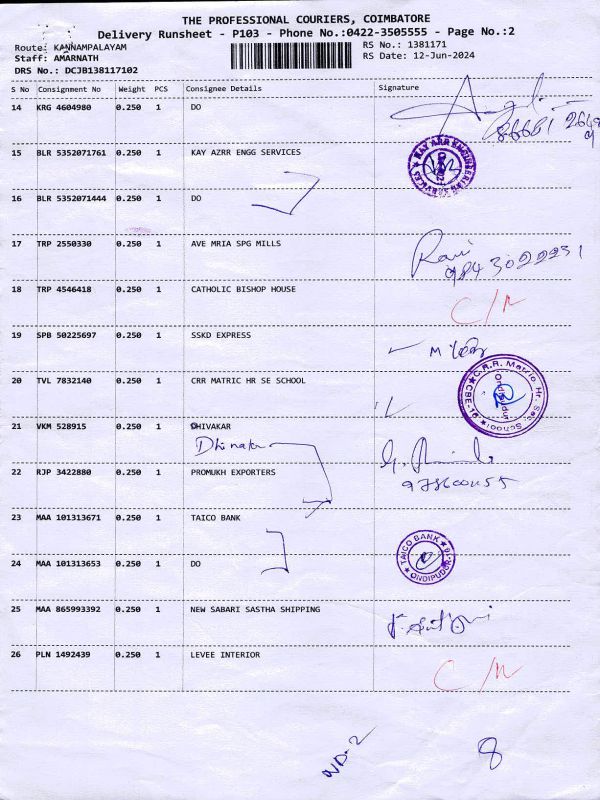 THE PROFESSIONAL COURIERS, COIMBATORE
Delivery Runsheet - P103 - Phone No.:0422-3505555 - Page No.:2
Route: KANNAMPALAYAM
RS No.: 1381171
Staff: AMARNATH
RS Date: 12-Jun-2024
DRS No.: DCJB138117102
S No Consignment No Weight PCS Consignee Details Signature
14 KRG 4604980 0.250 1 DO
15 BLR 5352071761 0.250 1 KAY AZRR ENGG SERVICES
KAY ARR ENGINEERING SERVICES
16 BLR 5352071444 0.250 1 DO
17 TRP 2550330 0.250 1 AVE MRIA SPG MILLS
Ravi
9843022231
18 TRP 4546418 0.250 1 CATHOLIC BISHOP HOUSE
C/N
19 SPB 50225697 0.250 1 SSKD EXPRESS
20 TVL 7832140 0.250 1 CRR MATRIC HR SE SCHOOL
C.R.R. Matric Hr. Sec. School
Ondipudur
CBE-16
21 VKM 528915 0.250 1 DHIVAKAR
22 RJP 3422880 0.250 1 PROMUKH EXPORTERS
23 MAA 101313671 0.250 1 TAICO BANK
24 MAA 101313653 0.250 1 DO
TAICO BANK
ONDIPUDUR-16
25 MAA 865993392 0.250 1 NEW SABARI SASTHA SHIPPING
26 PLN 1492439 0.250 1 LEVEE INTERIOR
C/N
ND-2
8